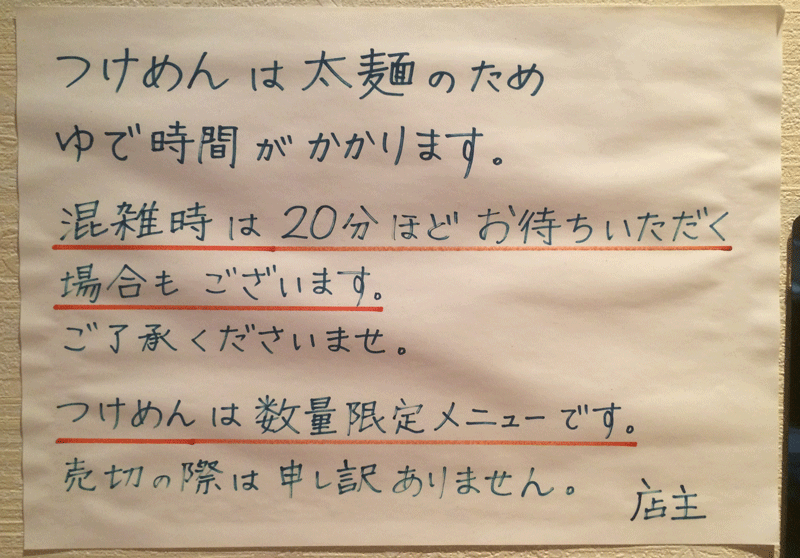 つけめんは太麺のため
ゆで時間がかかります。
混雑時は20分ほどお待ちいただく
場合もございます。
ご了承くださいませ。
つけめんは数量限定メニューです。
売切の際は申し訳ありません。
店主